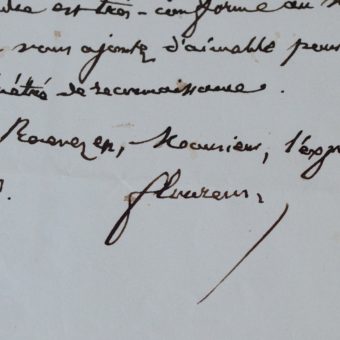 est très-conforme au
vous ajoutez d'aimable pour
pénétré de reconnaissance.
Recevez, Monsieur, l'exp
flourens,